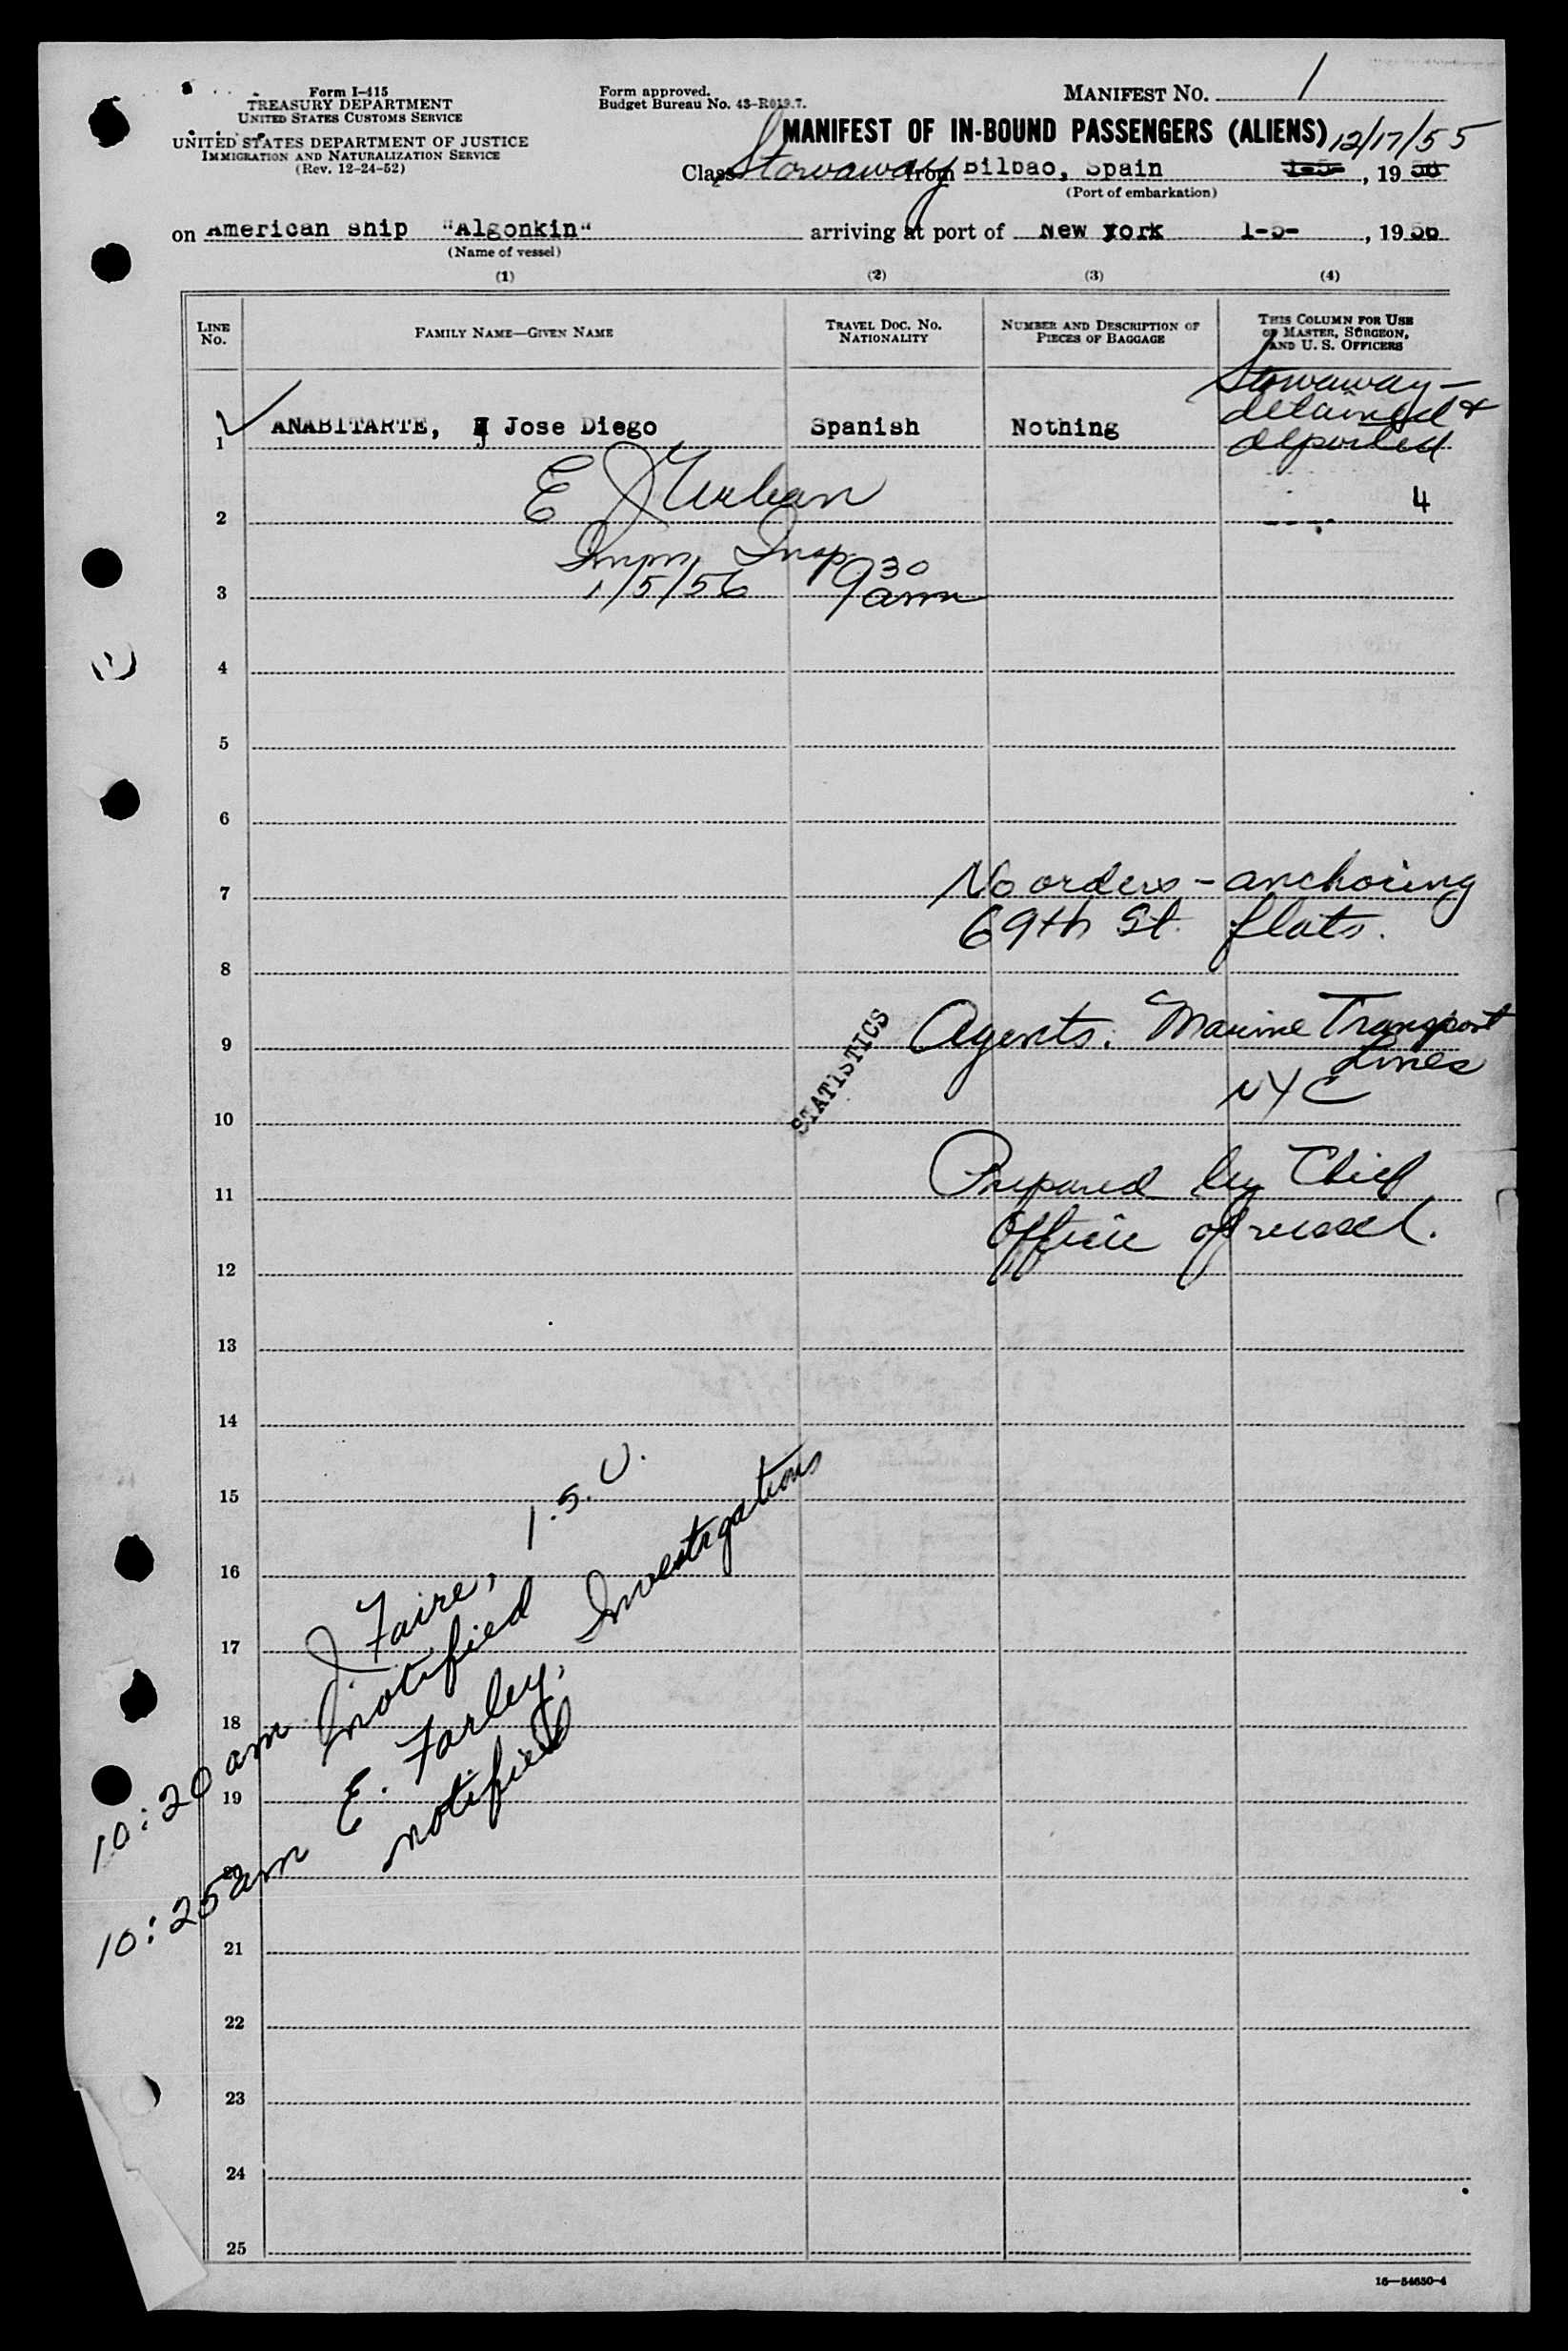 Form I-415
TREASURY DEPARTMENT
UNITED STATES CUSTOMS SERVICE
UNITED STATES DEPARTMENT OF JUSTICE
IMMIGRATION AND NATURALIZATION SERVICE
(Rev. 12-24-52)
Form approved.
Budget Bureau No. 43-R019.7.
MANIFEST NO. 1
MANIFEST OF IN-BOUND PASSENGERS (ALIENS) 12/17/55
Class Stowaway from Bilbao, Spain 1-5-, 1956
(Port of embarkation)
on American ship "Algonkin" arriving at port of New York 1-5-, 1956
(Name of vessel)
(1) (2) (3) (4)
LINE NO.
FAMILY NAME—GIVEN NAME
TRAVEL DOC. NO. NATIONALITY
NUMBER AND DESCRIPTION OF PIECES OF BAGGAGE
THIS COLUMN FOR USE OF MASTER, SURGEON, AND U. S. OFFICERS
Stowaway-
detained &
deported
1 ANABITARTE, Jose Diego Spanish Nothing
E J
4
2
Imm. Insp.
9 30
3 1/5/56 am
4
5
6
7 No orders - anchoring
69th St. flats.
8
9 Agents: Marine Transport
Lines
NYC
STATISTICS
10
11 Prepared by Chief
Officer of vessel.
12
13
14
15
16
17
18
19
20
21
22
23
24
25
10:20 am J Faire, I.S.U.
notified
10:25 am E. Farley, Investigations
notified
16—54650-4